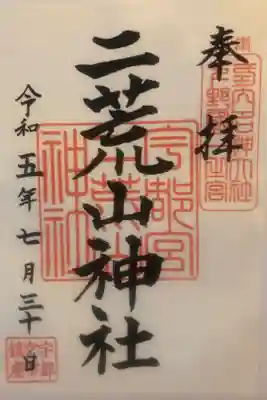 奉拝
二荒山神社
令和五年七月三十日
宇都宮
二荒山
神社